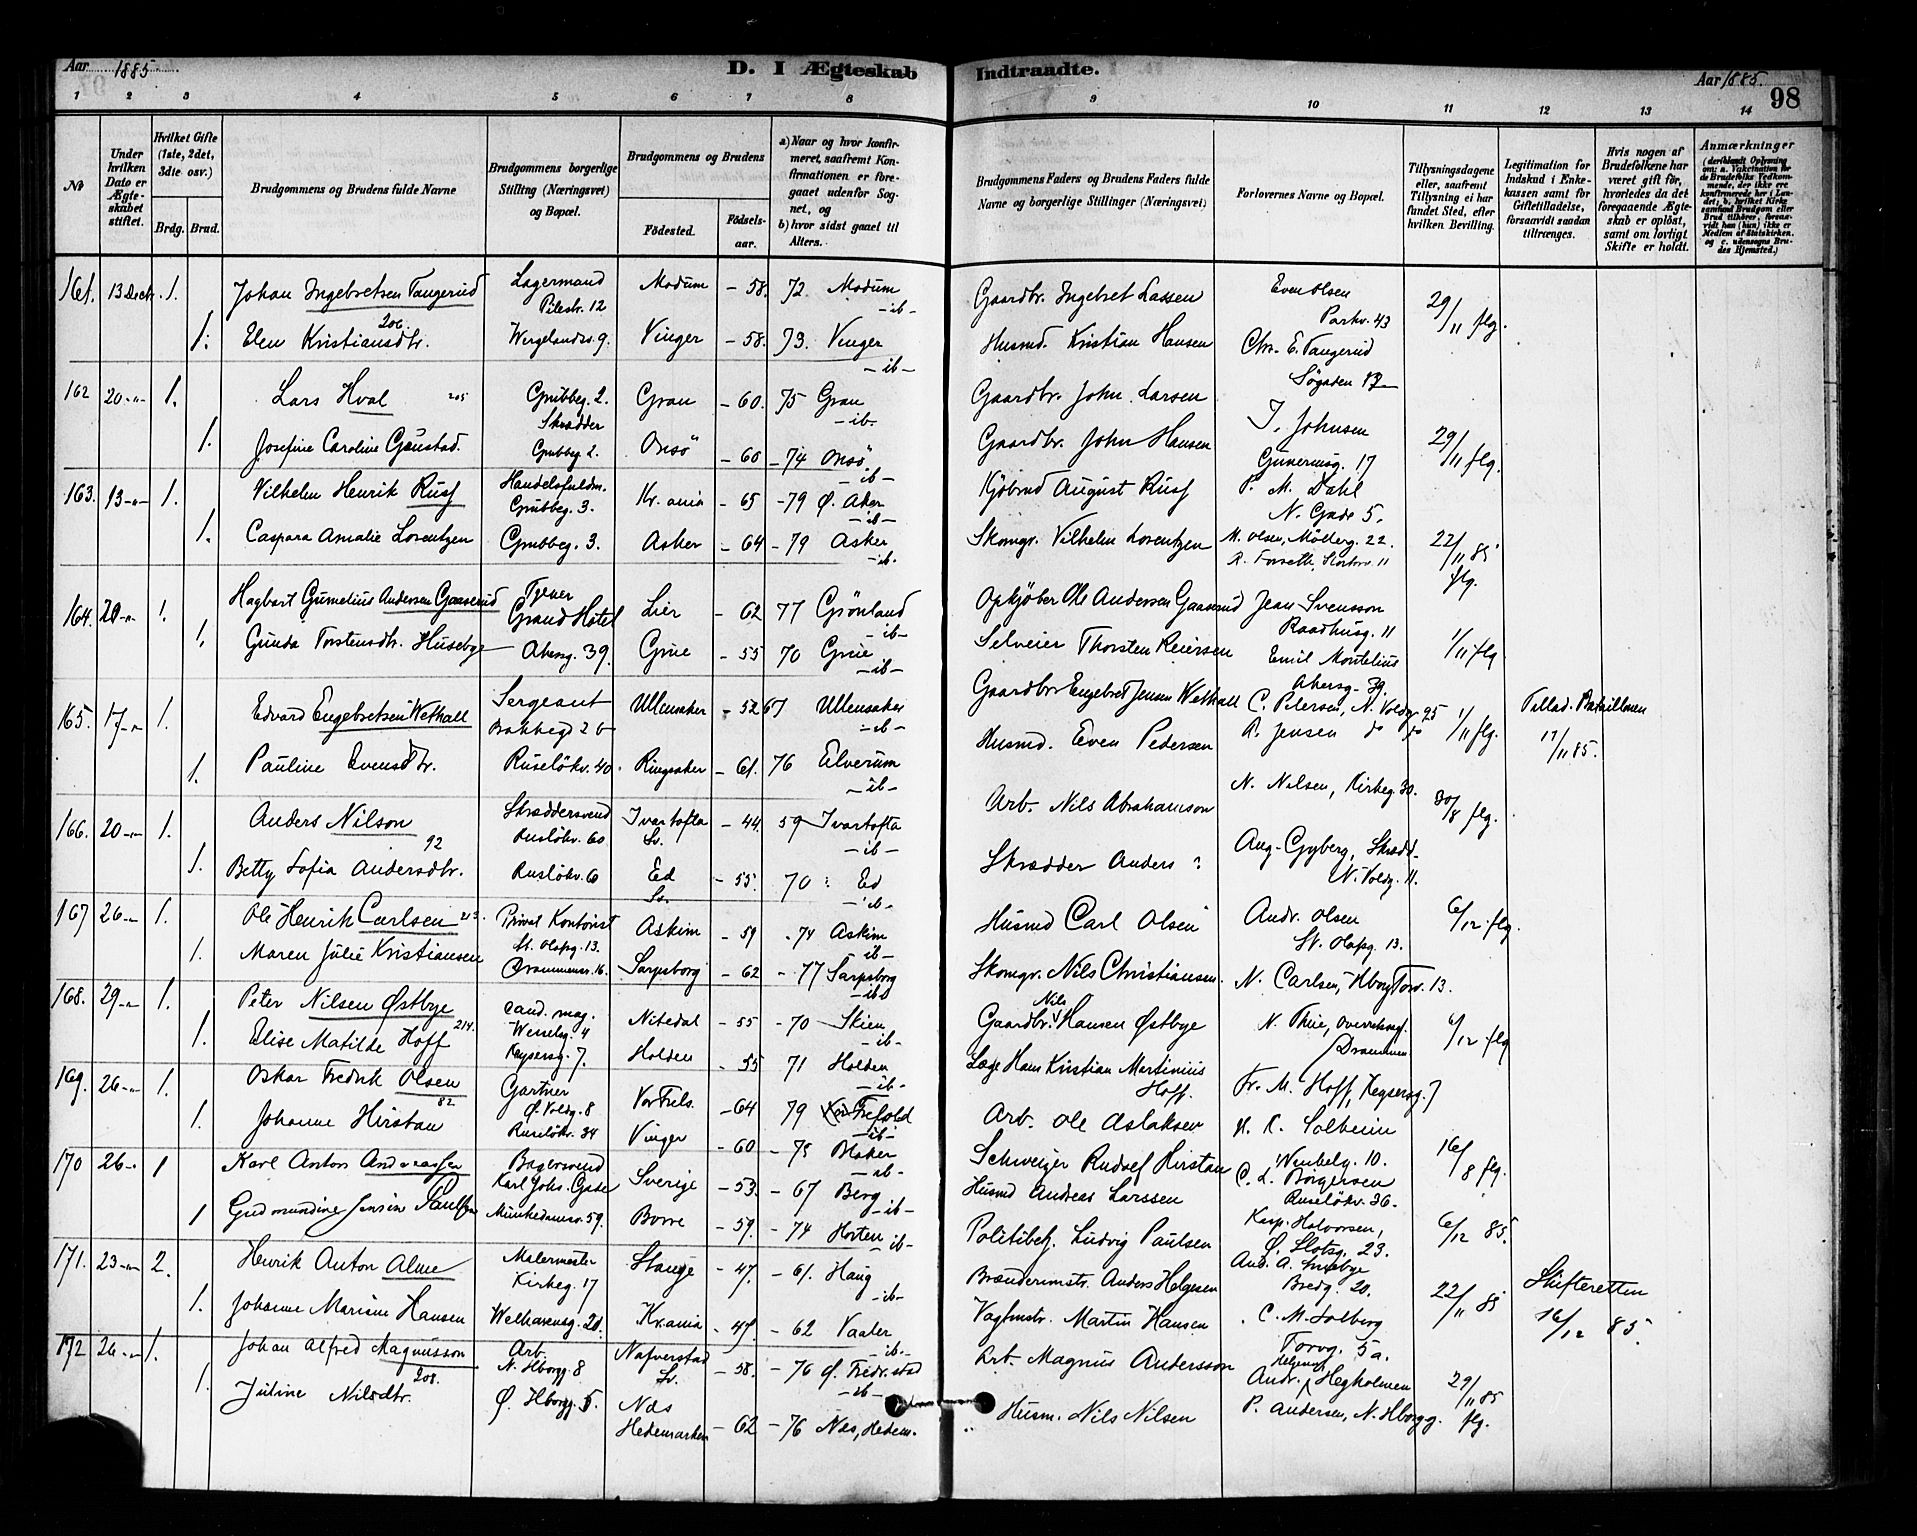 Aar 1885
D. I Ægteskab
Indtraadte.
Aar 1885.
98
1 2 3 4 5 6 7 8 9 10 11 12 13 14
No
Under hvilken Dato er Ægteskabet stiftet.
Hvilket Gifte (1ste, 2det, 3die osv.)
Brdg. Brud.
Brudgommens og Brudens fulde Navne
Brudgommens borgerlige Stilling (Næringsvei) og Bopæl.
Brudgommens og Brudens
Fødested.
Fødselsaar.
a) Naar og hvor konfirmeret, saafremt Konfirmationen er foregaaet udenfor Sognet, og
b) hvor sidst gaaet til Alters.
Brudgommens Faders og Brudens Faders fulde Navne og borgerlige Stillinger (Næringsvei)
Forlovernes Navne og Bopæl.
Tillysningsdagene eller, saafremt Tillysning ei har fundet Sted, efter hvilken Bevilling.
Legitimation for Indskud i Enkekassen samt for Giftetilladelse, forsaavidt saadan tiltrænges.
Hvis nogen af Brudefolkene har været gift før, hvorledes da det foregaaende Ægteskab er opløst, samt om lovligt Skifte er holdt.
Anmærkninger
161. 13 Decbr. 1. Johan Ingebretsen Tangerud Lagermand Pilestr. 12 Modum - 58. 72 Modum -ib- Gaardbr. Ingebret Lassen Even Olsen Parkv. 43 29/11 flg.
206.
1. Elen Kristiansdtr. Wergelandsv. 9. Vinger - 58. 73. Vinger -ib- Husmd. Kristian Hansen Chr. E. Tangerud Søgaden 13
162 20-"- 1. Lars Hval 205 Grubbeg. 2. Skrædder Gran - 60. 75 Gran -ib- Gaardbr. John Larsen J. Johnsen 29/11 flg.
1. Josefine Caroline Gaustad. Grubbeg. 2. Onsö - 60 - 74 Onsö -ib- Gaardbr. John Hansen 17
163. 13-"- 1. Vilhelm Henrik Rusf Grubbeg. 3. Kr.ania - 65 - 79 Ø. Aker -ib- August Rusf P. M. Dahl N. Gade 5.
1. Caspara Amalie Lorentzen Grubbeg. 3. Asker - 64 - 79 Asker -ib- Skomgr. Vilhelm Lorentzen M. Olsen, Mölleg. 22. R. Forseth, Storkrv. 11 22/11 85 flg.
164. 20-"- 1. Hagbart Gumelius Andersen Gaaserud Tjener Grand Hotel Lier - 62 77 Grönland -ib- Opkjöber Ole Andersen Gaaserud Jean Svensson Raadhusg. 11
1. Gunda Torstensdtr. Husebye Akersg. 39. Grue - 55 70 Grue -ib- Selveier Thorsten Reiersen Emil Montelius Akersg. 39 1/11 flg
165. 17-"- 1. Edvard Engebretsen Wethall Sergeant Bakkegd 2 b Ullensaker - 52 67 Ullensaker -ib- Gaardbr. Engebret Jensen Wethall C. Petersen, N. Voldg. 25 1/11 flg. Tillad. Bataillonen 17/11 85.
1. Pauline Evensdtr. Ruselökv. 40. Ringsaker - 61. 76 Elverum -ib- Husmd. Even Pedersen R. Jensen do do
166. 20-"- 1. Anders Nilson Skræddersvend Ruslökv. 60 Ivartofta Sv. - 44. 59 Ivartofta -ib- Arb. Nils Abrahamson N. Nelsen, Kirkeg. 30. 30/8 flg.
92
1. Betty Sofia Andersdtr. Ruslökv. 6 Ed Sv. - 55. 70 Ed -ib- Skrædder Anders ? Aug. Gyberg, Skrædd. N. Voldg. 11.
167 26-"- 1. Ole Henrik Carlsen 213. Privat Kontorist St. Olafsg. 13. Askim - 59 - 74 Askim -ib- Husmd Carl Olsen Andr. Olsen St. Olafsg. 13. 6/12 flg.
1. Maren Julie Kristiansen Drammensv. 16. Sarpsborg - 62 - 77 Sarpsborg -ib- Skomgr. Nils Christiansen. N. Carlsen, Hborg Torv. 13.
168. 29-"- 1. Peter Nilsen Østbye cand. mag. Wesselsg. 4 Nitedal - 55 - 70 Skien -ib- Gaardbr. Nils Hansen Østbye N. Thue, Drammen 6/12 flg
214.
1. Elise Matilde Hoff Keysersg. 7. Holden - 55 71 Holden -ib- Læge Hans Kristian Martinius Hoff. Fr. M. Hoff, Keysersg. 7
169. 26-"- 1. Oskar Fredrik Olsen Gartner Ø. Voldg. 8 Vor Frels. - 64 79 Trefold -ib- Arb. Ole Aslaksen H. K. Solheim Wenbelg. 10. 16/8 flg.
82
1. Johanne Hirstan Ruselökv. 34 Vinger - 60 - 75 Blaker -ib- Schweizer Rudolf Hirstan C. L. Borgersen Ruselökv. 36.
170 26-"- 1 Karl Anton Andreassen Bagersvend Karl Johs. Gade Sverige - 53. - 67 Berg -ib- Husmd Andreas Larssen Kasp. Halvorsen, Ø. Slotsg. 23. 6/12 85.
1 Gudmundine Jensine Paulsen Munkedamsv. 59. Borre - 59. - 74 Horten -ib- Politibetj. Ludvig Paulsen
171. 23-"- 2. Henrik Anton Alme Malermester Kirkeg. 17 Stange - 47. - 61. Haug -ib- Brænderimstr. Anders Helgesen Bredg. 20. 22/11 85 Skifteretten 16/12 85.
1. Johanne Marine Hansen Welhavensg. 20. Kr.ania - 47. - 62 Vaaler -ib- Vagtmstr. Martin Hansen C. M. Solberg Torvg. 5a.
172 26-"- 1. Johan Alfred Magnusson Arb. N. Hborgg. 8 Nafverstad Sv. - 58. - 76 Ø. Fredr.stad -ib- Arb. Magnus Andersson Andr. Helgesen Hegholmen 29/11 85 flg.
208.
1. Juline Nilsdtr. Ø. Hborgg. 5. Næs Hedemarken - 62 - 76 Næs, Hedem. Husm. Nils Nilsen P. Andersen, N. Hborgg.